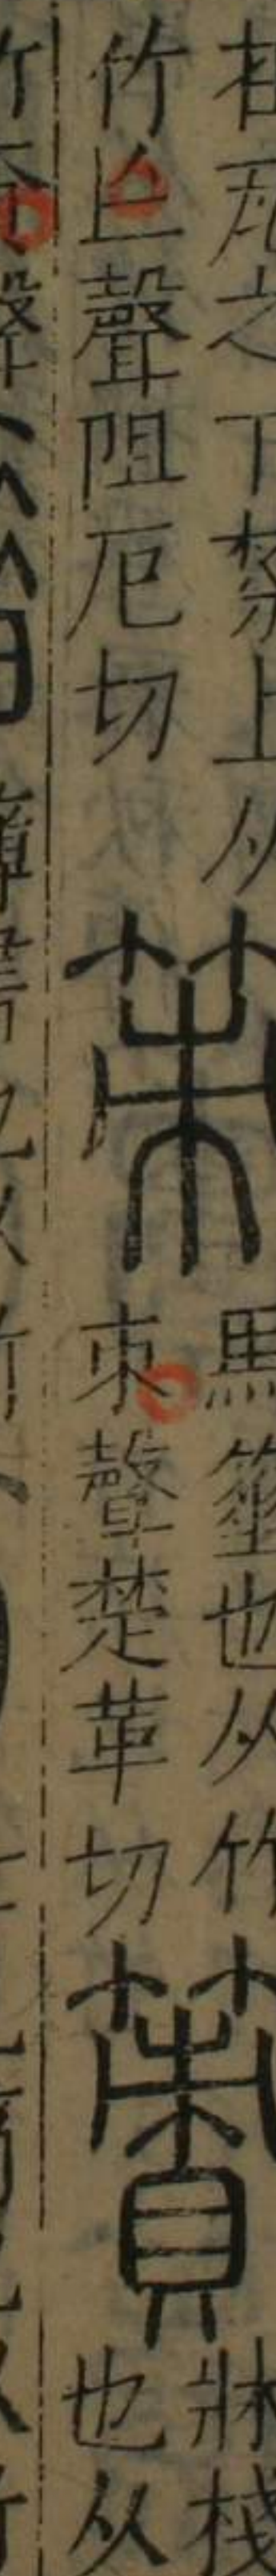 在瓦之下棼上从
竹乍聲阻厄切
策
馬箠也从竹
朿聲楚革切
簀
牀棧
也从